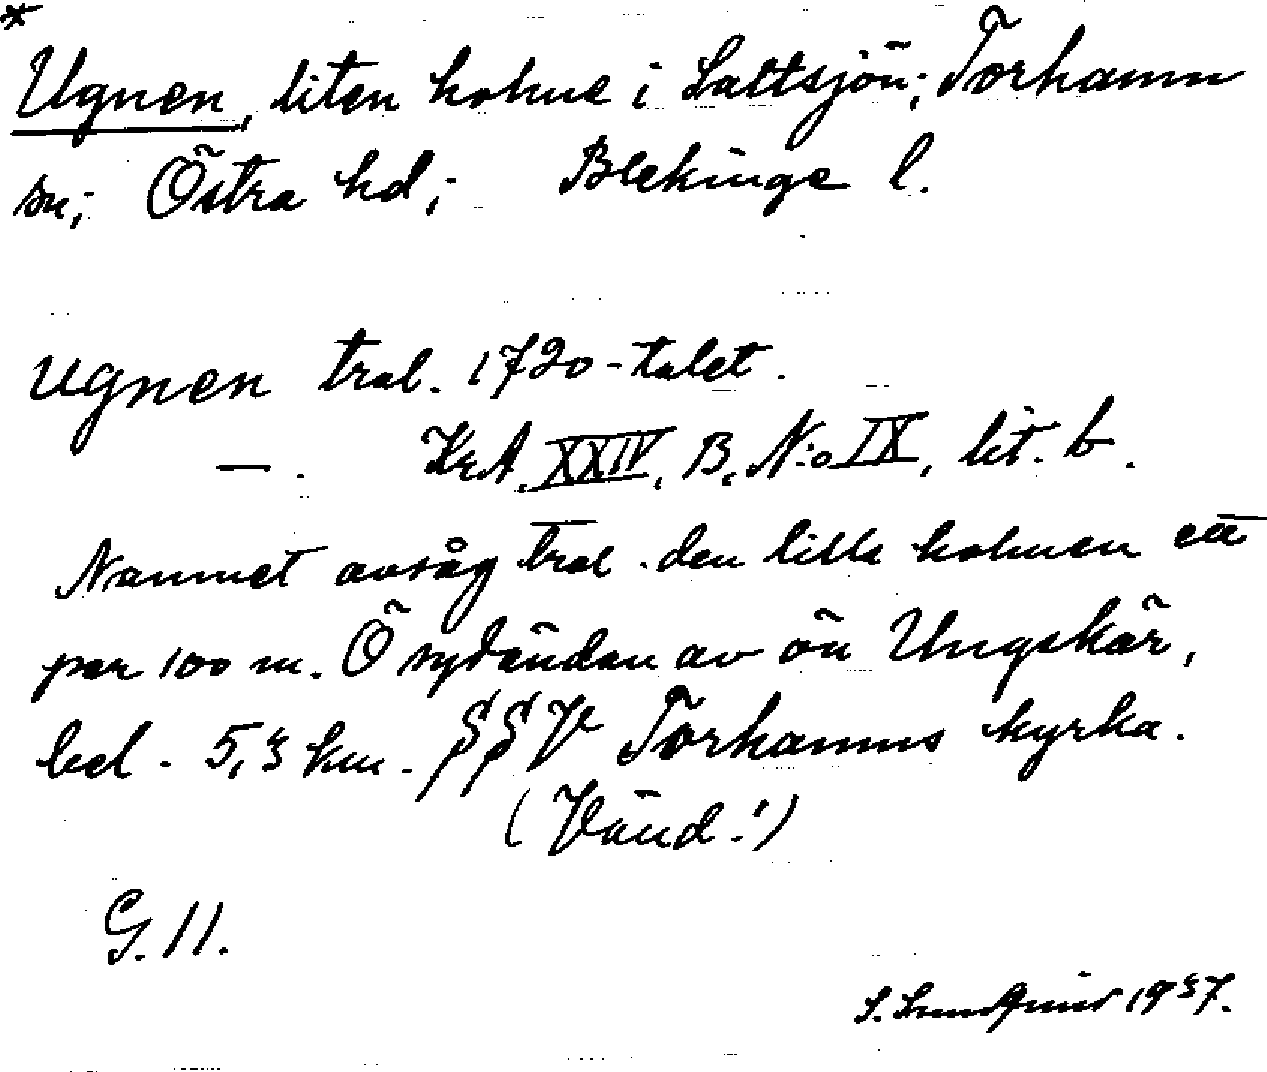 *
Ugnen, liten holme i Saltsjön; Torhamn
sn; Östra hd; Blekinge l.
Ugnen trol. 1720-talet.
—. KrA. XXIV. B. N:o IX, lit. b.
Namnet avsåg trol. den lilla holmen ett
par 100 m. Ö sydändan av ön Ungskär,
bel. 5,3 km. SSV Torhamns kyrka.
(Vänd!)
G. 11.
S. Lundqvist 1937.